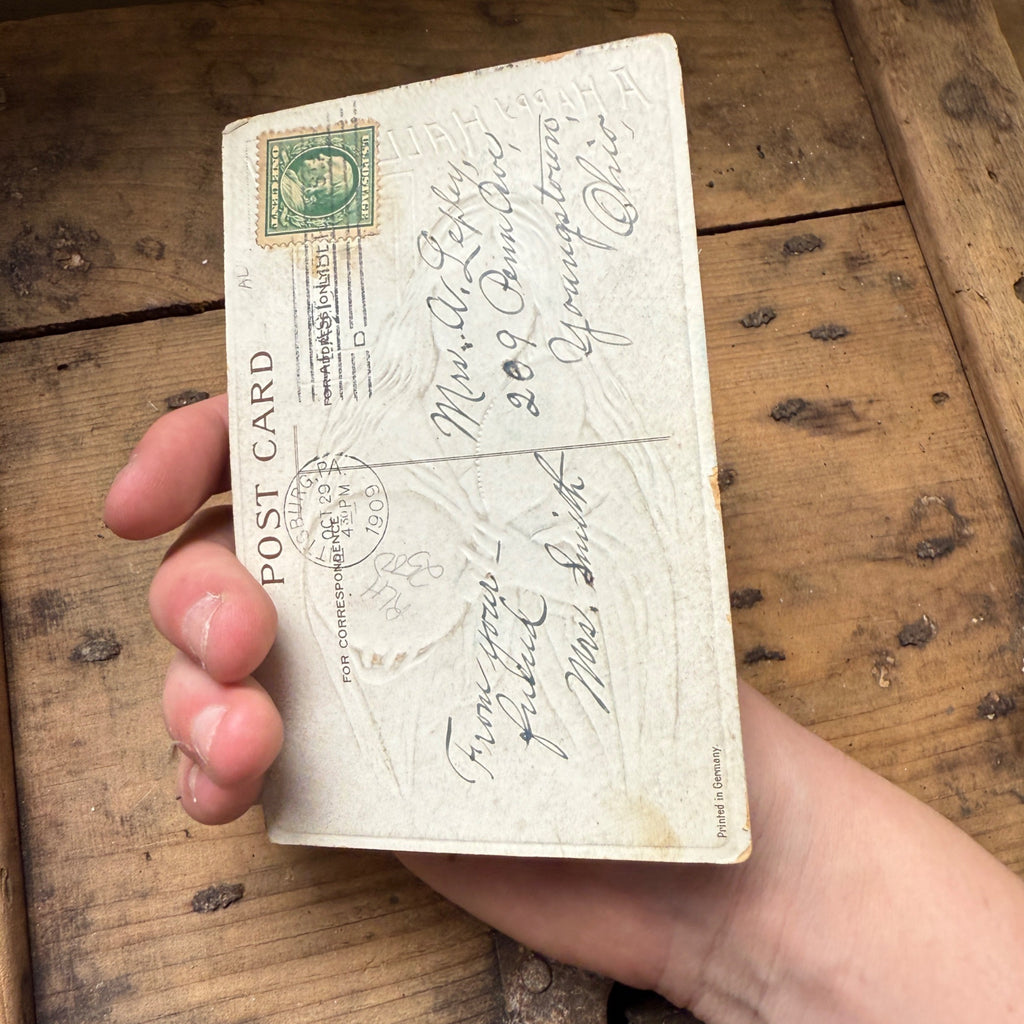 POST CARD
FOR CORRESPONDENCE
FOR ADDRESS ONLY
U.S. POSTAGE
ONE CENT
SBURG, P
OCT 29
4 30 PM
1909
D
A HAPPY HALL
From your
friend
Mrs. Smith
Mrs. A. Lepley,
209 Penn Ave,
Youngstown,
Ohio,
Printed in Germany.